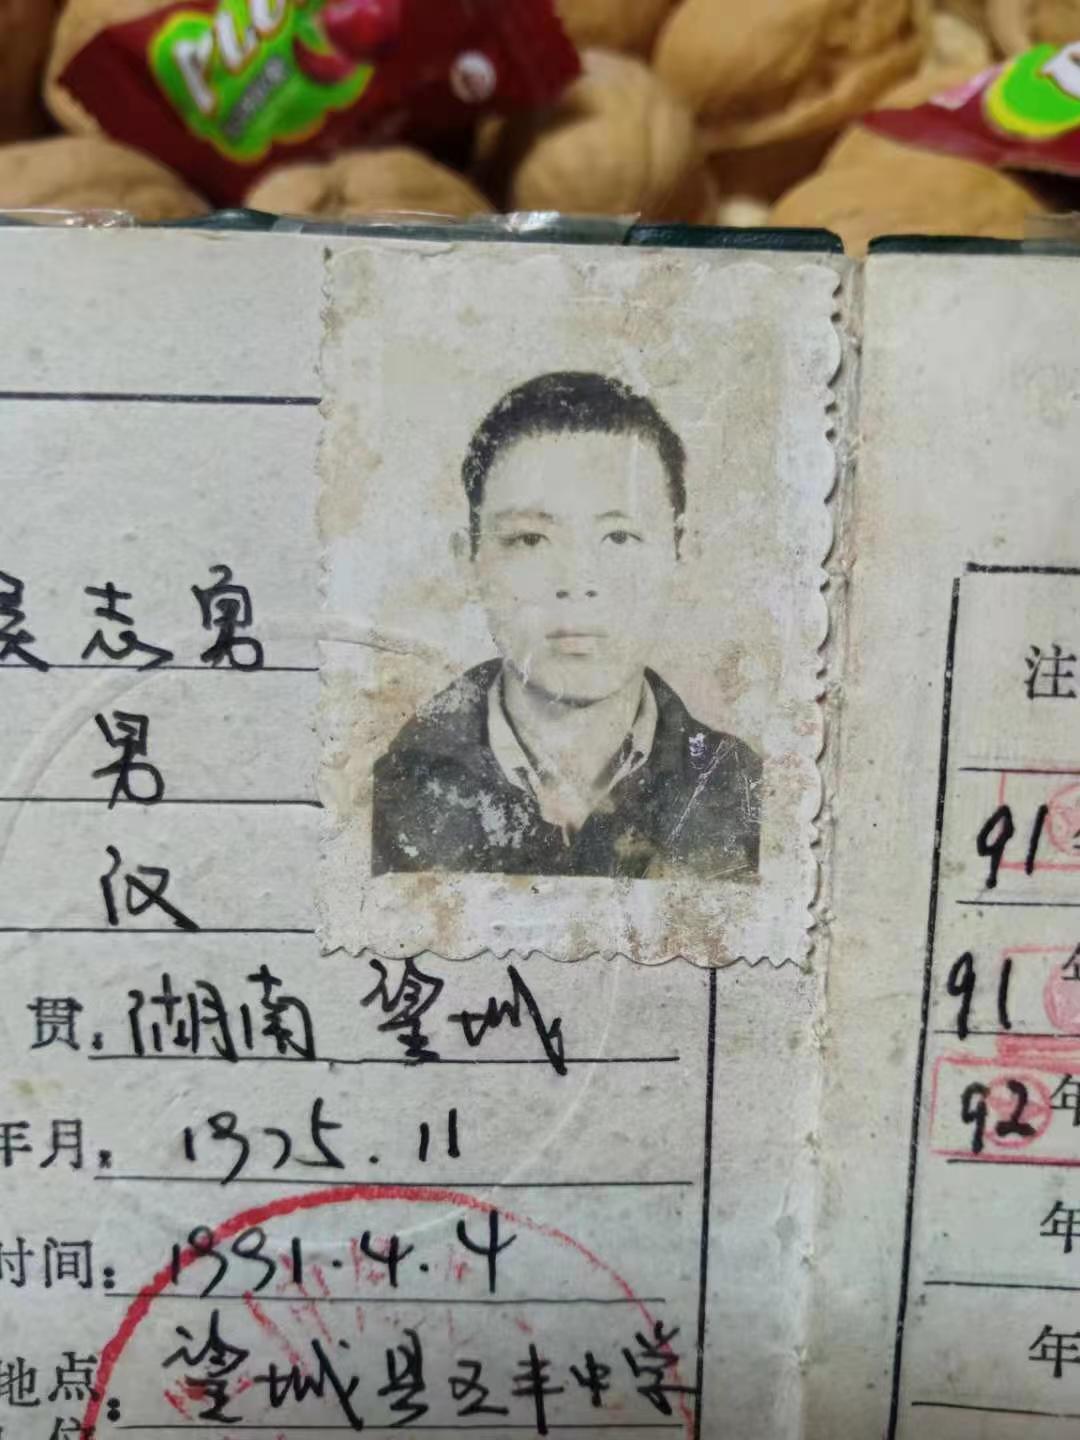 志勇
男
汉
贯：湖南 望城
年月：1975.11
时间：1991.4.4
地点：望城县五丰中学
位
注
91年
91年
92年
年
年